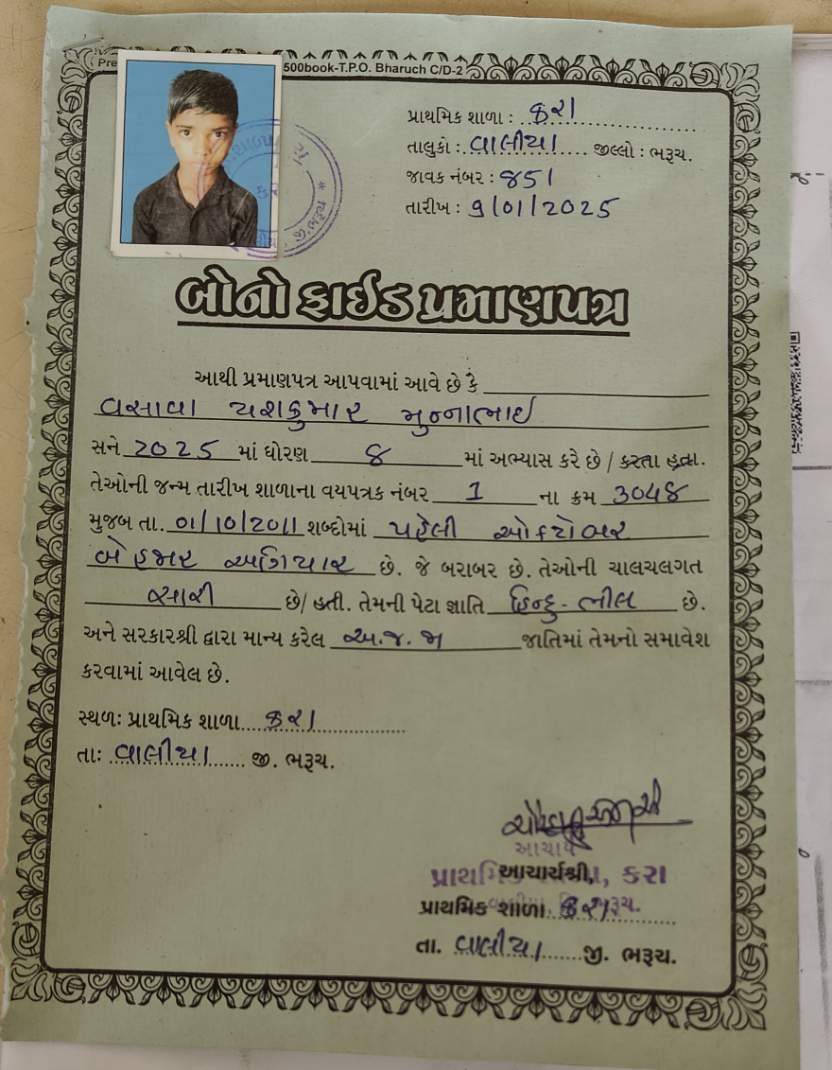 500book-T.P.O. Bharuch C/D-2
પ્રાથમિક શાળા : કરા
તાલુકો : વાલીયા જીલ્લો : ભરૂચ.
જાવક નંબર : ૪51
તારીખ : 9/01/2025
બોનો ફાઈડ પ્રમાણપત્ર
આથી પ્રમાણપત્ર આપવામાં આવે છે કે
વસાવા યશકુમાર મુન્નાભાઈ
સને 2025 માં ધોરણ 8 માં અભ્યાસ કરે છે / કરતા હતા.
તેઓની જન્મ તારીખ શાળાના વયપત્રક નંબર 1 ના ક્રમ 3048
મુજબ તા. 01/10/2011 શબ્દોમાં પહેલી ઓક્ટોબર
બે હજાર અગિયાર છે. જે બરાબર છે. તેઓની ચાલચલગત
સારી છે/ હતી. તેમની પેટા જ્ઞાતિ હિન્દુ-ભીલ છે.
અને સરકારશ્રી દ્વારા માન્ય કરેલ અ.જ.જા જાતિમાં તેમનો સમાવેશ
કરવામાં આવેલ છે.
સ્થળ: પ્રાથમિક શાળા કરા
તા: વાલીયા જી. ભરૂચ.
આચાર્ય
આચાર્યશ્રી, કરા
પ્રાથમિક શાળા કરા
તા. વાલીયા જી. ભરૂચ.